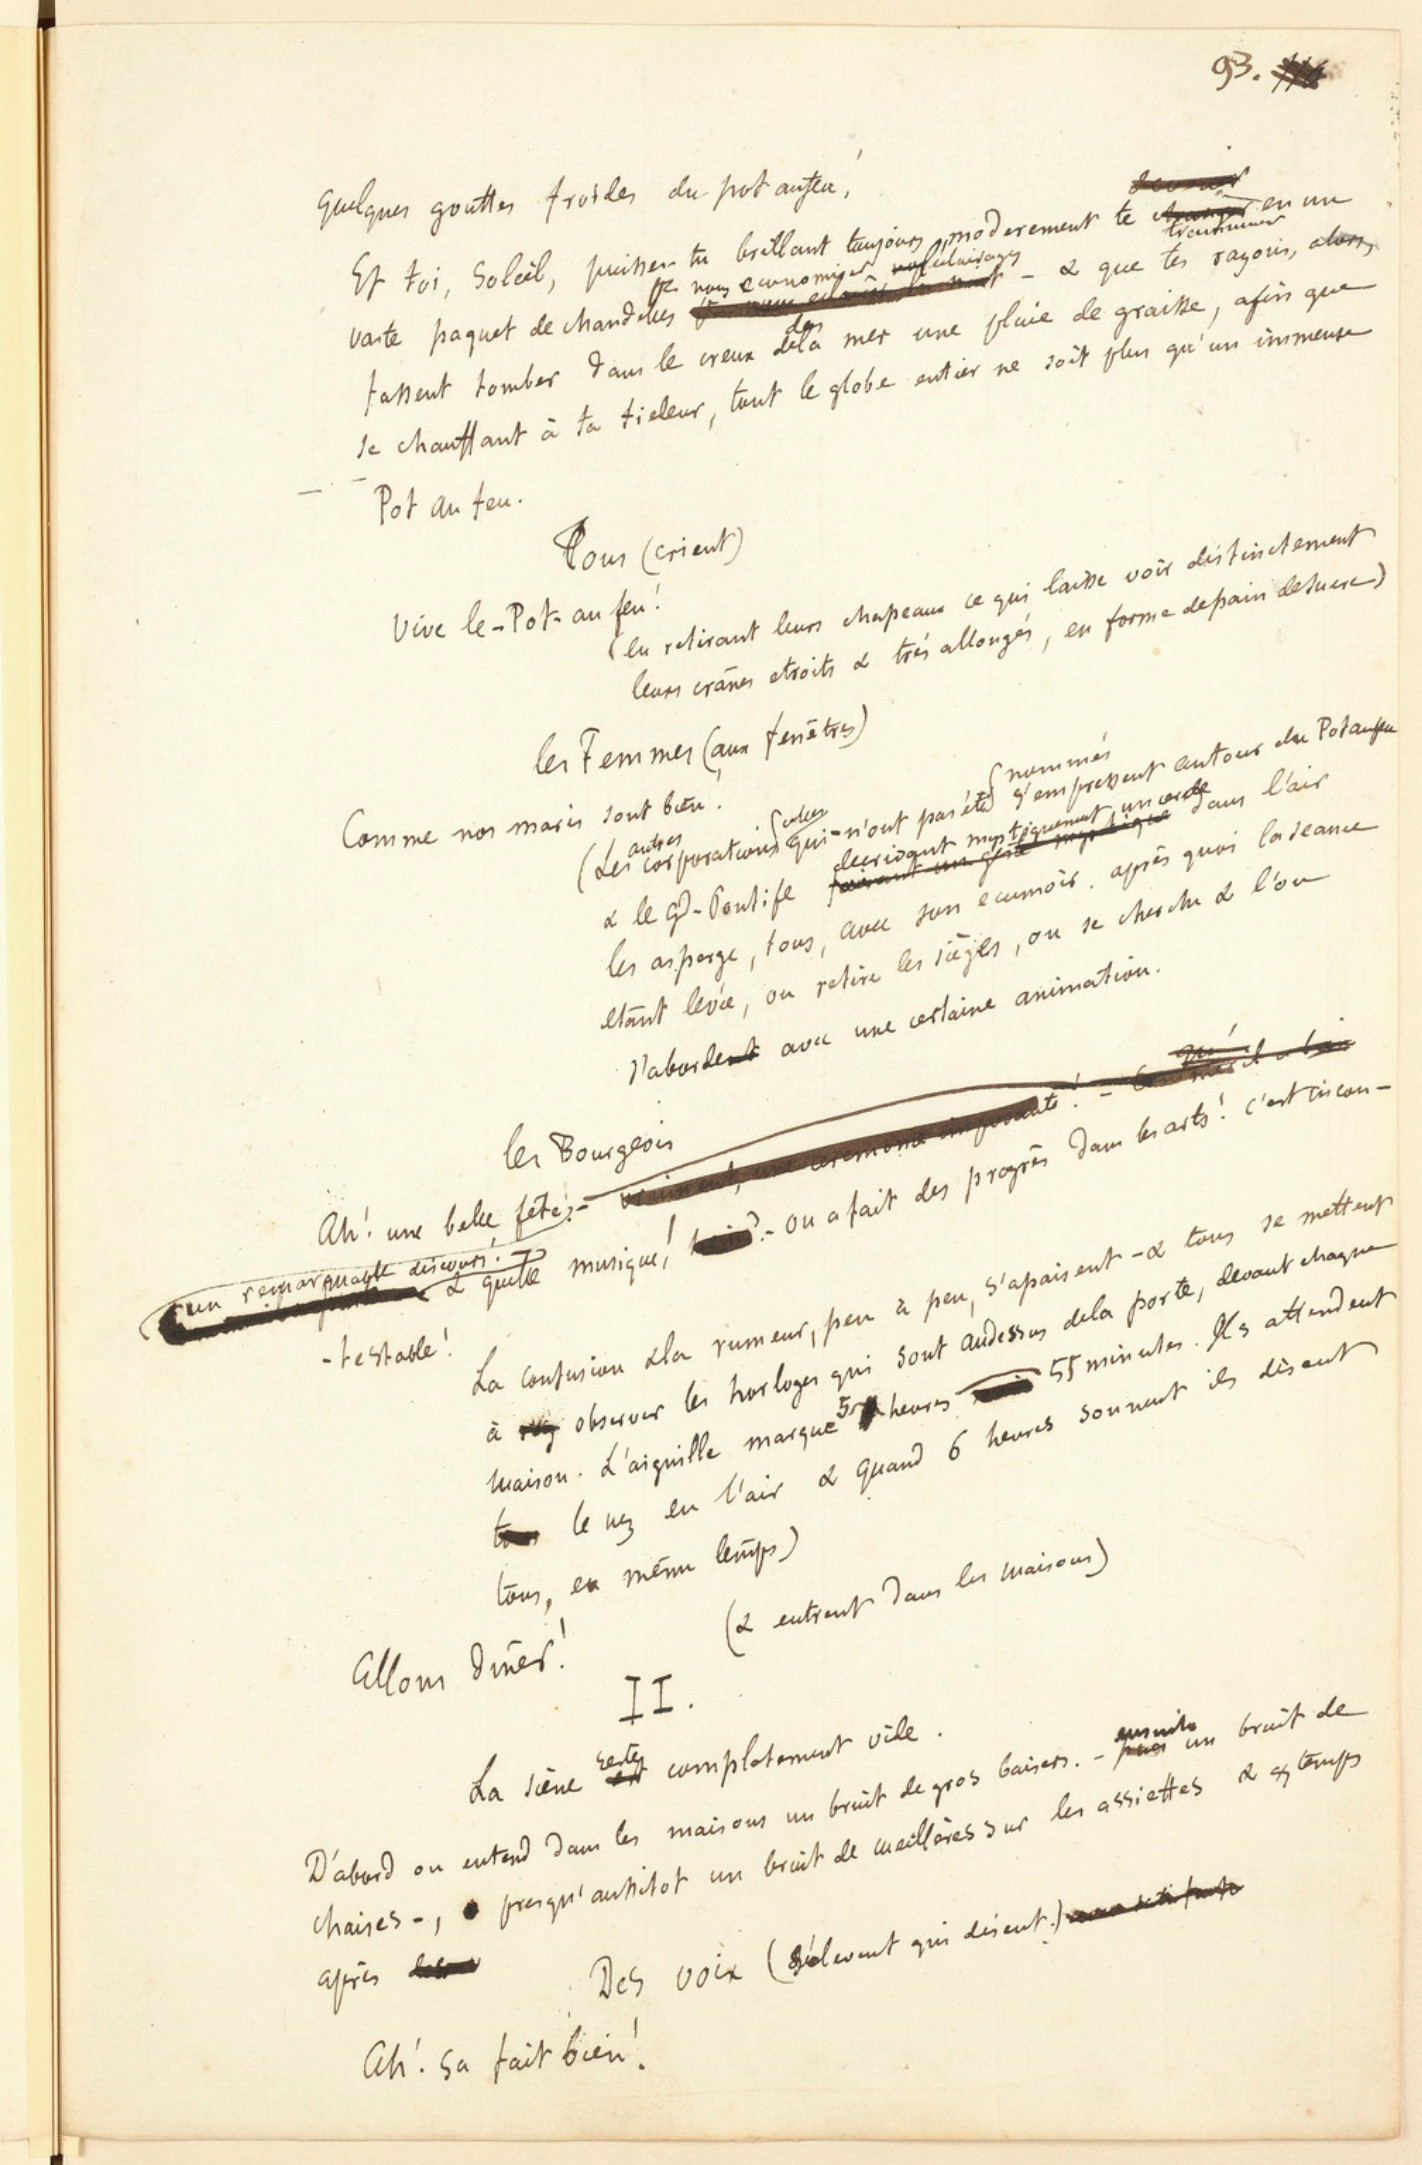 93.
quelques gouttes froides du pot aufeu!
Et toi, Soleil, puisses-tu brillant toujours moderement te transmuer en un
vaste paquet de chandelles pr nous economiser nos eclairages - & que tes rayons, alors,
fassent tomber dans le creux des mer une pluie de graisse, afin que
se chauffant à ta tiedeur, tout le globe entier ne soit plus qu'un immense
Pot au feu.
Tous (crient)
Vive le-Pot-au feu!
(en retirant leurs chapeaux ce qui laisse voir distinctement
leurs crânes etroits & très allongés, en forme depain desucre)
les Femmes (aux fenêtres)
Comme nos maris sont bien!
(Les autres corporations qui n'ont pas été nommés s'empressent autour du Potaufeu
& le gd-Pontife decrivant mystiquement un cercle dans l'air
les asperge, tous, avec son ecumoir. après quoi laseance
etant levée, on retire les sièges, on se cherche & l'on
s'aborde avec une certaine animation.
les Bourgeois
Ah! une belle fête! -
un remarquable discours! & quelle musique! - on a fait des progrès dans les arts! c'est incon-
-testable!
La confusion &la rumeur, peu à peu, s'apaisent - & tous se mettent
à observer les horloges qui sont audessus dela porte, devant chaque
maison. L'aiguille marque 5 heures 55 minutes. Ils attendent
le nez en l'air & quand 6 heures sonnent ils disent
tous, en même temps)
Allons dîner!
(& entrent dans les maisons)
II.
La scène reste completement vide.
D'abord on entend dans les maisons un bruit de gros baisers. - ensuite un bruit de
chaises -, presqu'aussitot un bruit de cuillères sur les assiettes & qq temps
après
Des voix (s'élevent qui disent.)
Ah! sa fait bien!